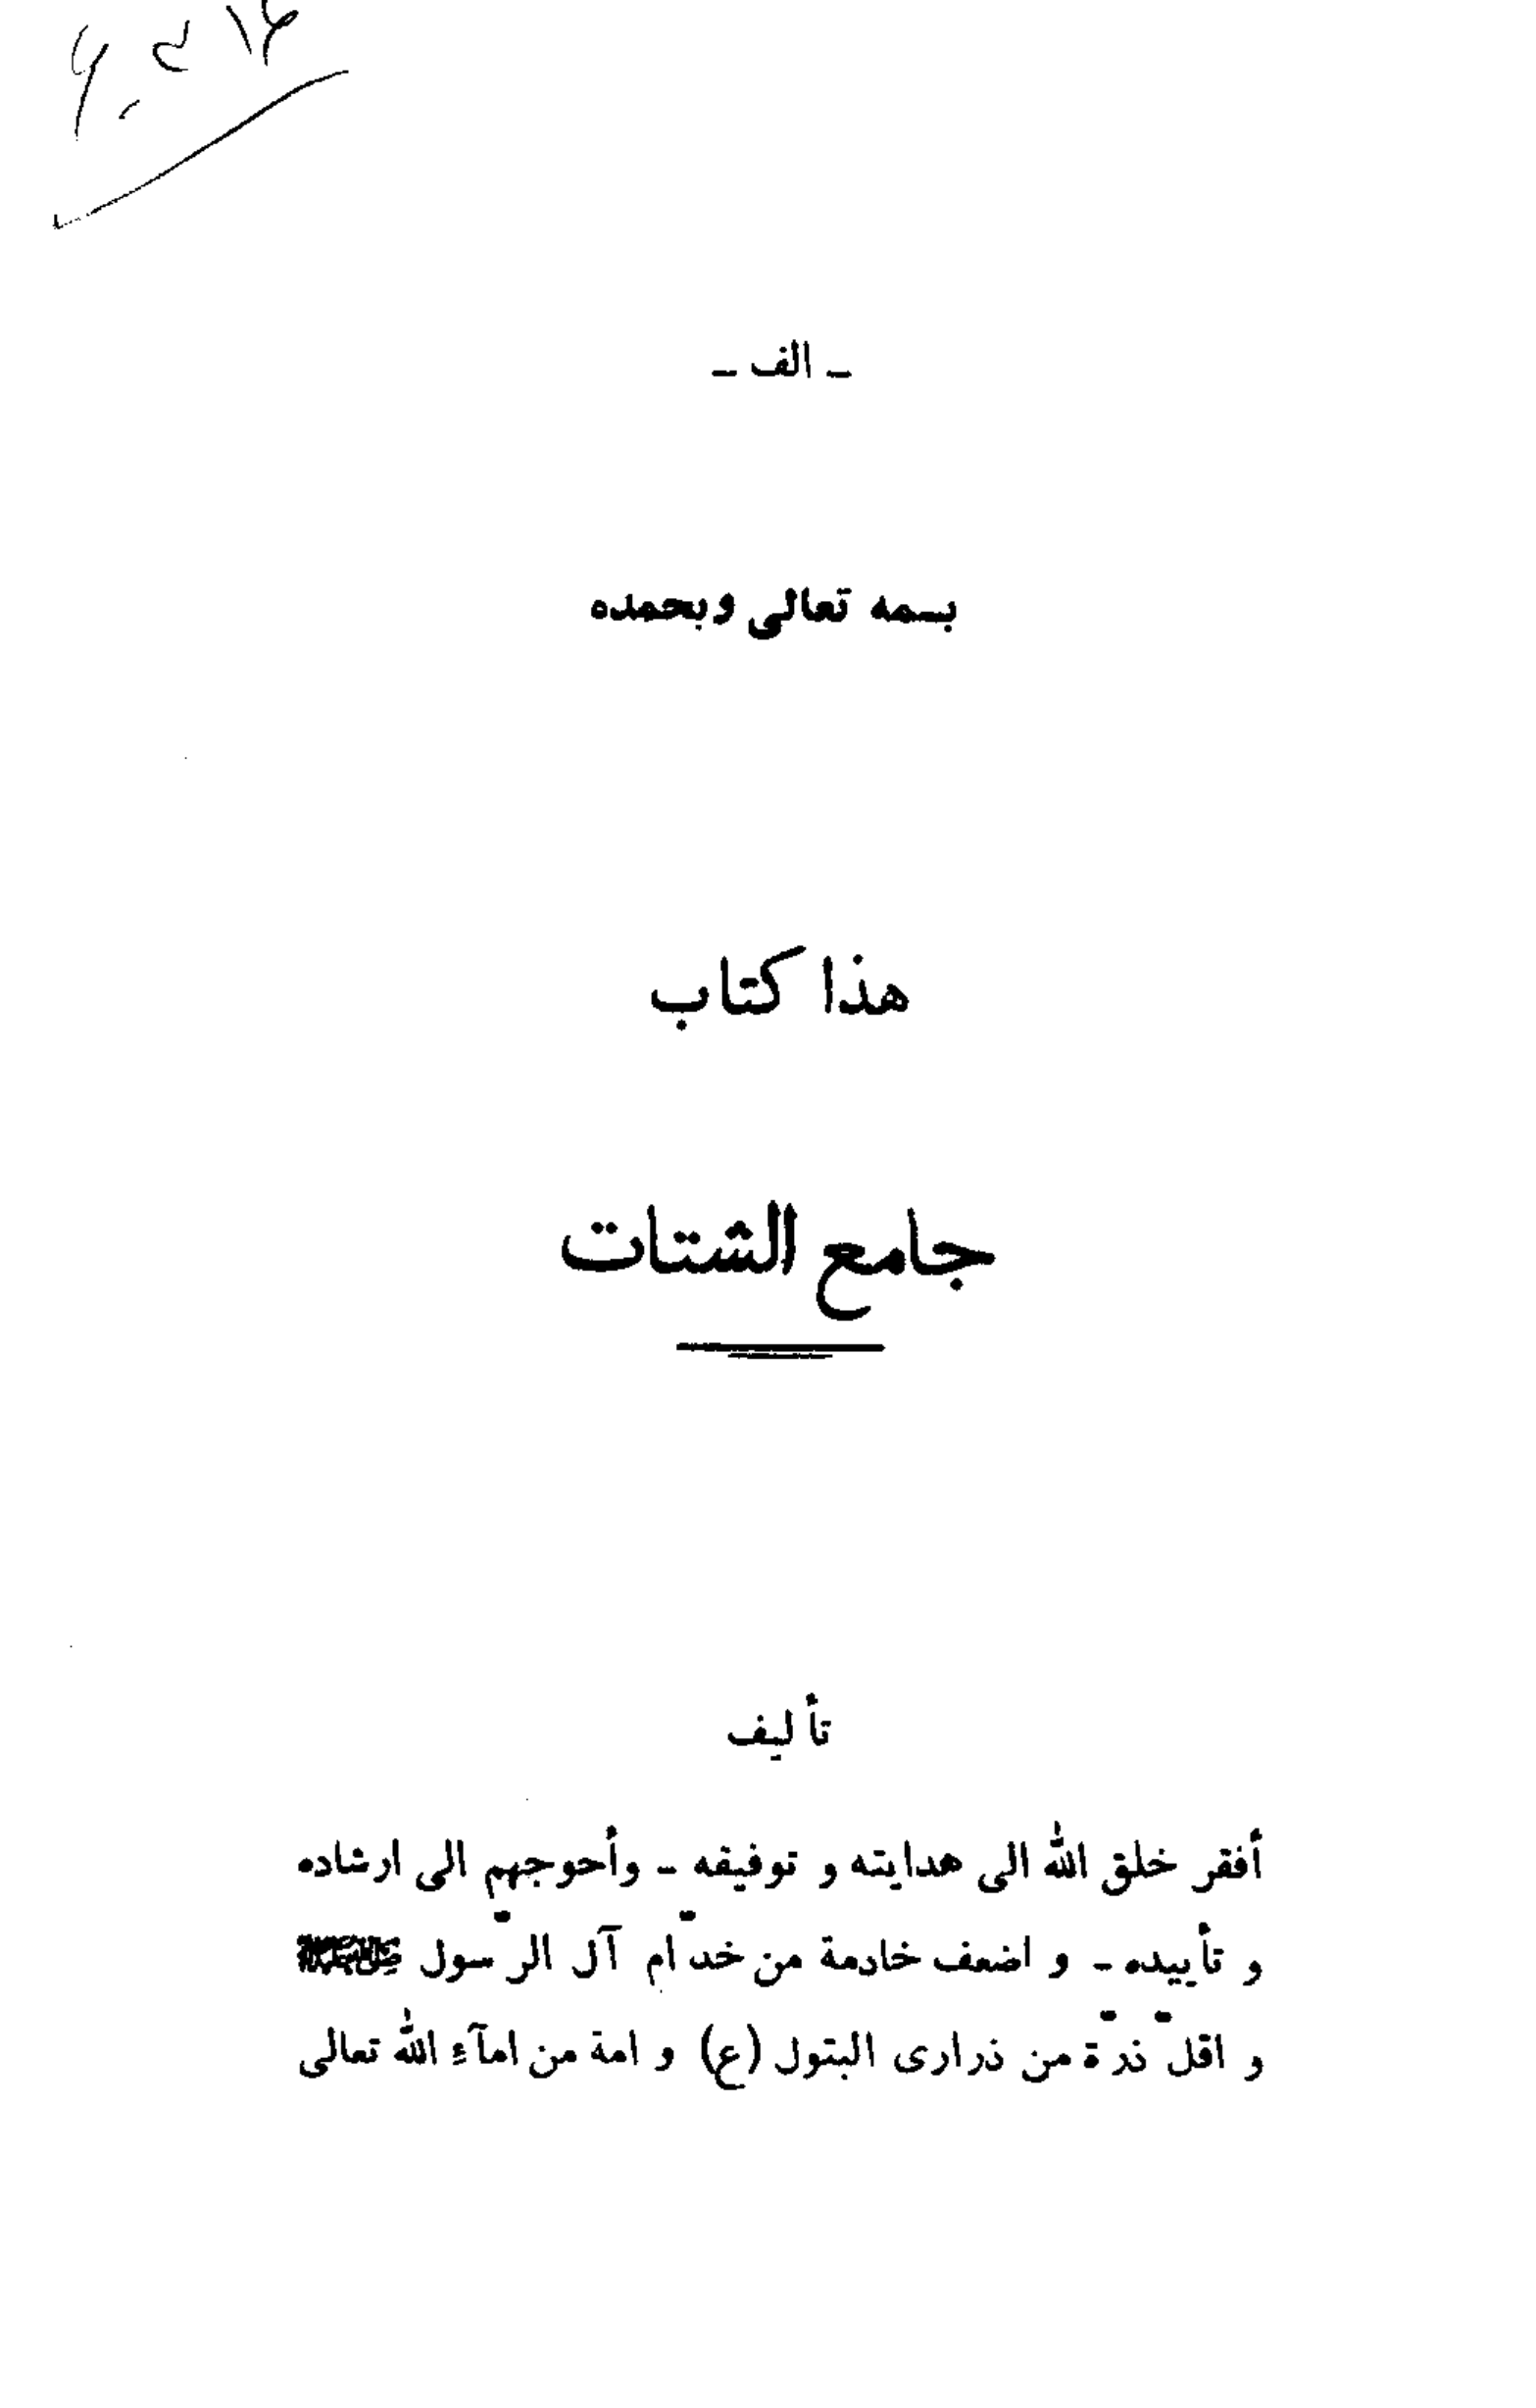 ـ الف ـ
بسمه تعالى وبحمده
هذا كتاب
جامع الشتات
تأليف
أفقر خلق الله الى هدايته و توفيقه ـ وأحوجهم الى ارشاده
و تأييده ـ و اضعف خادمة من خدّام آل الرّسول
و اقلّ ذرّة من ذرارى البتول (ع) و امة من امآءِ الله تعالى